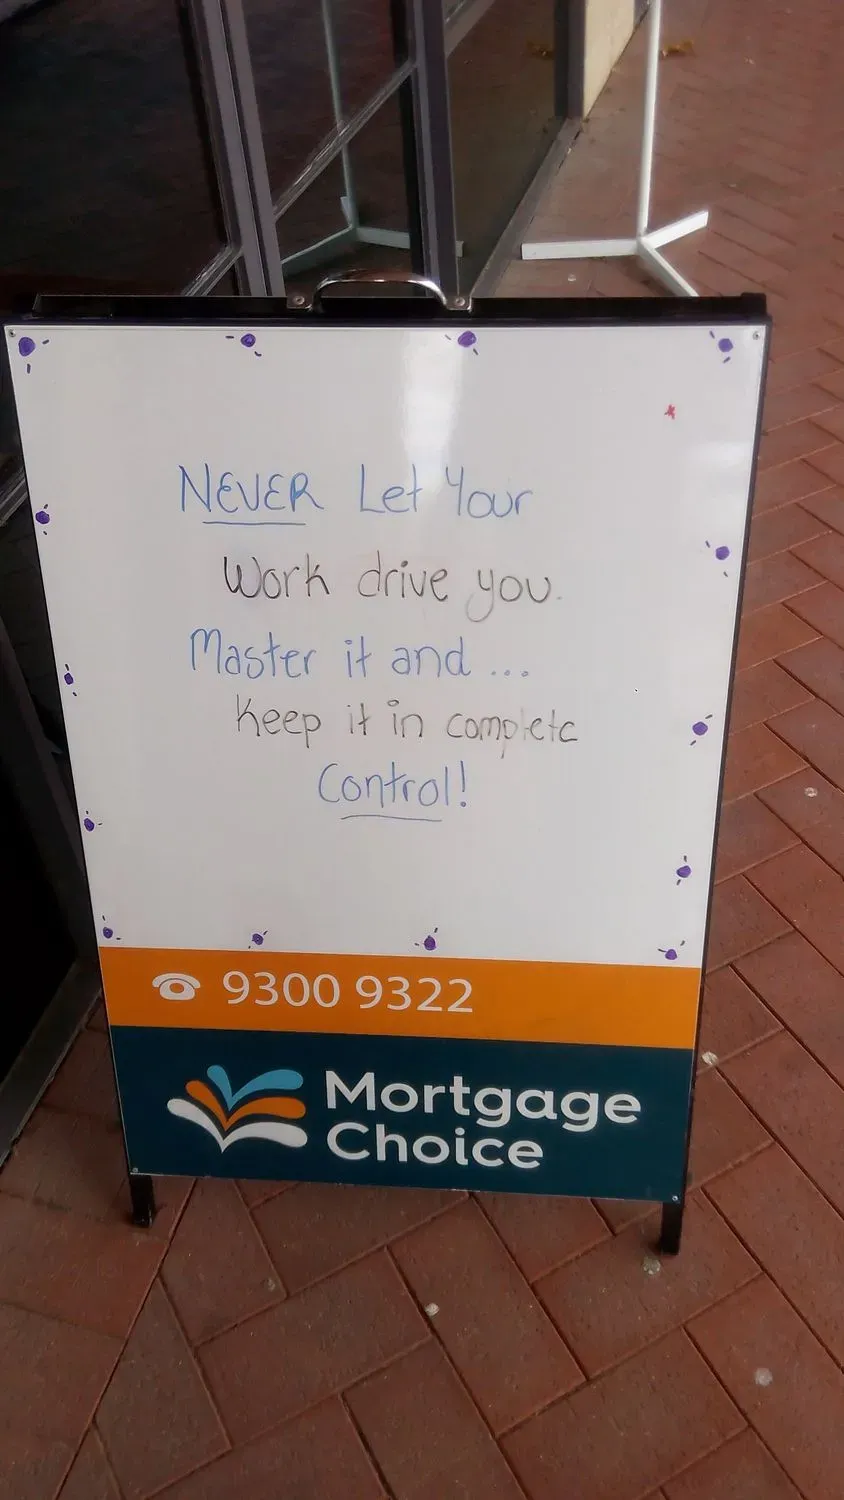 NEVER Let Your
Work drive you.
Master it and ...
Keep it in complete
Control!
9300 9322
Mortgage
Choice